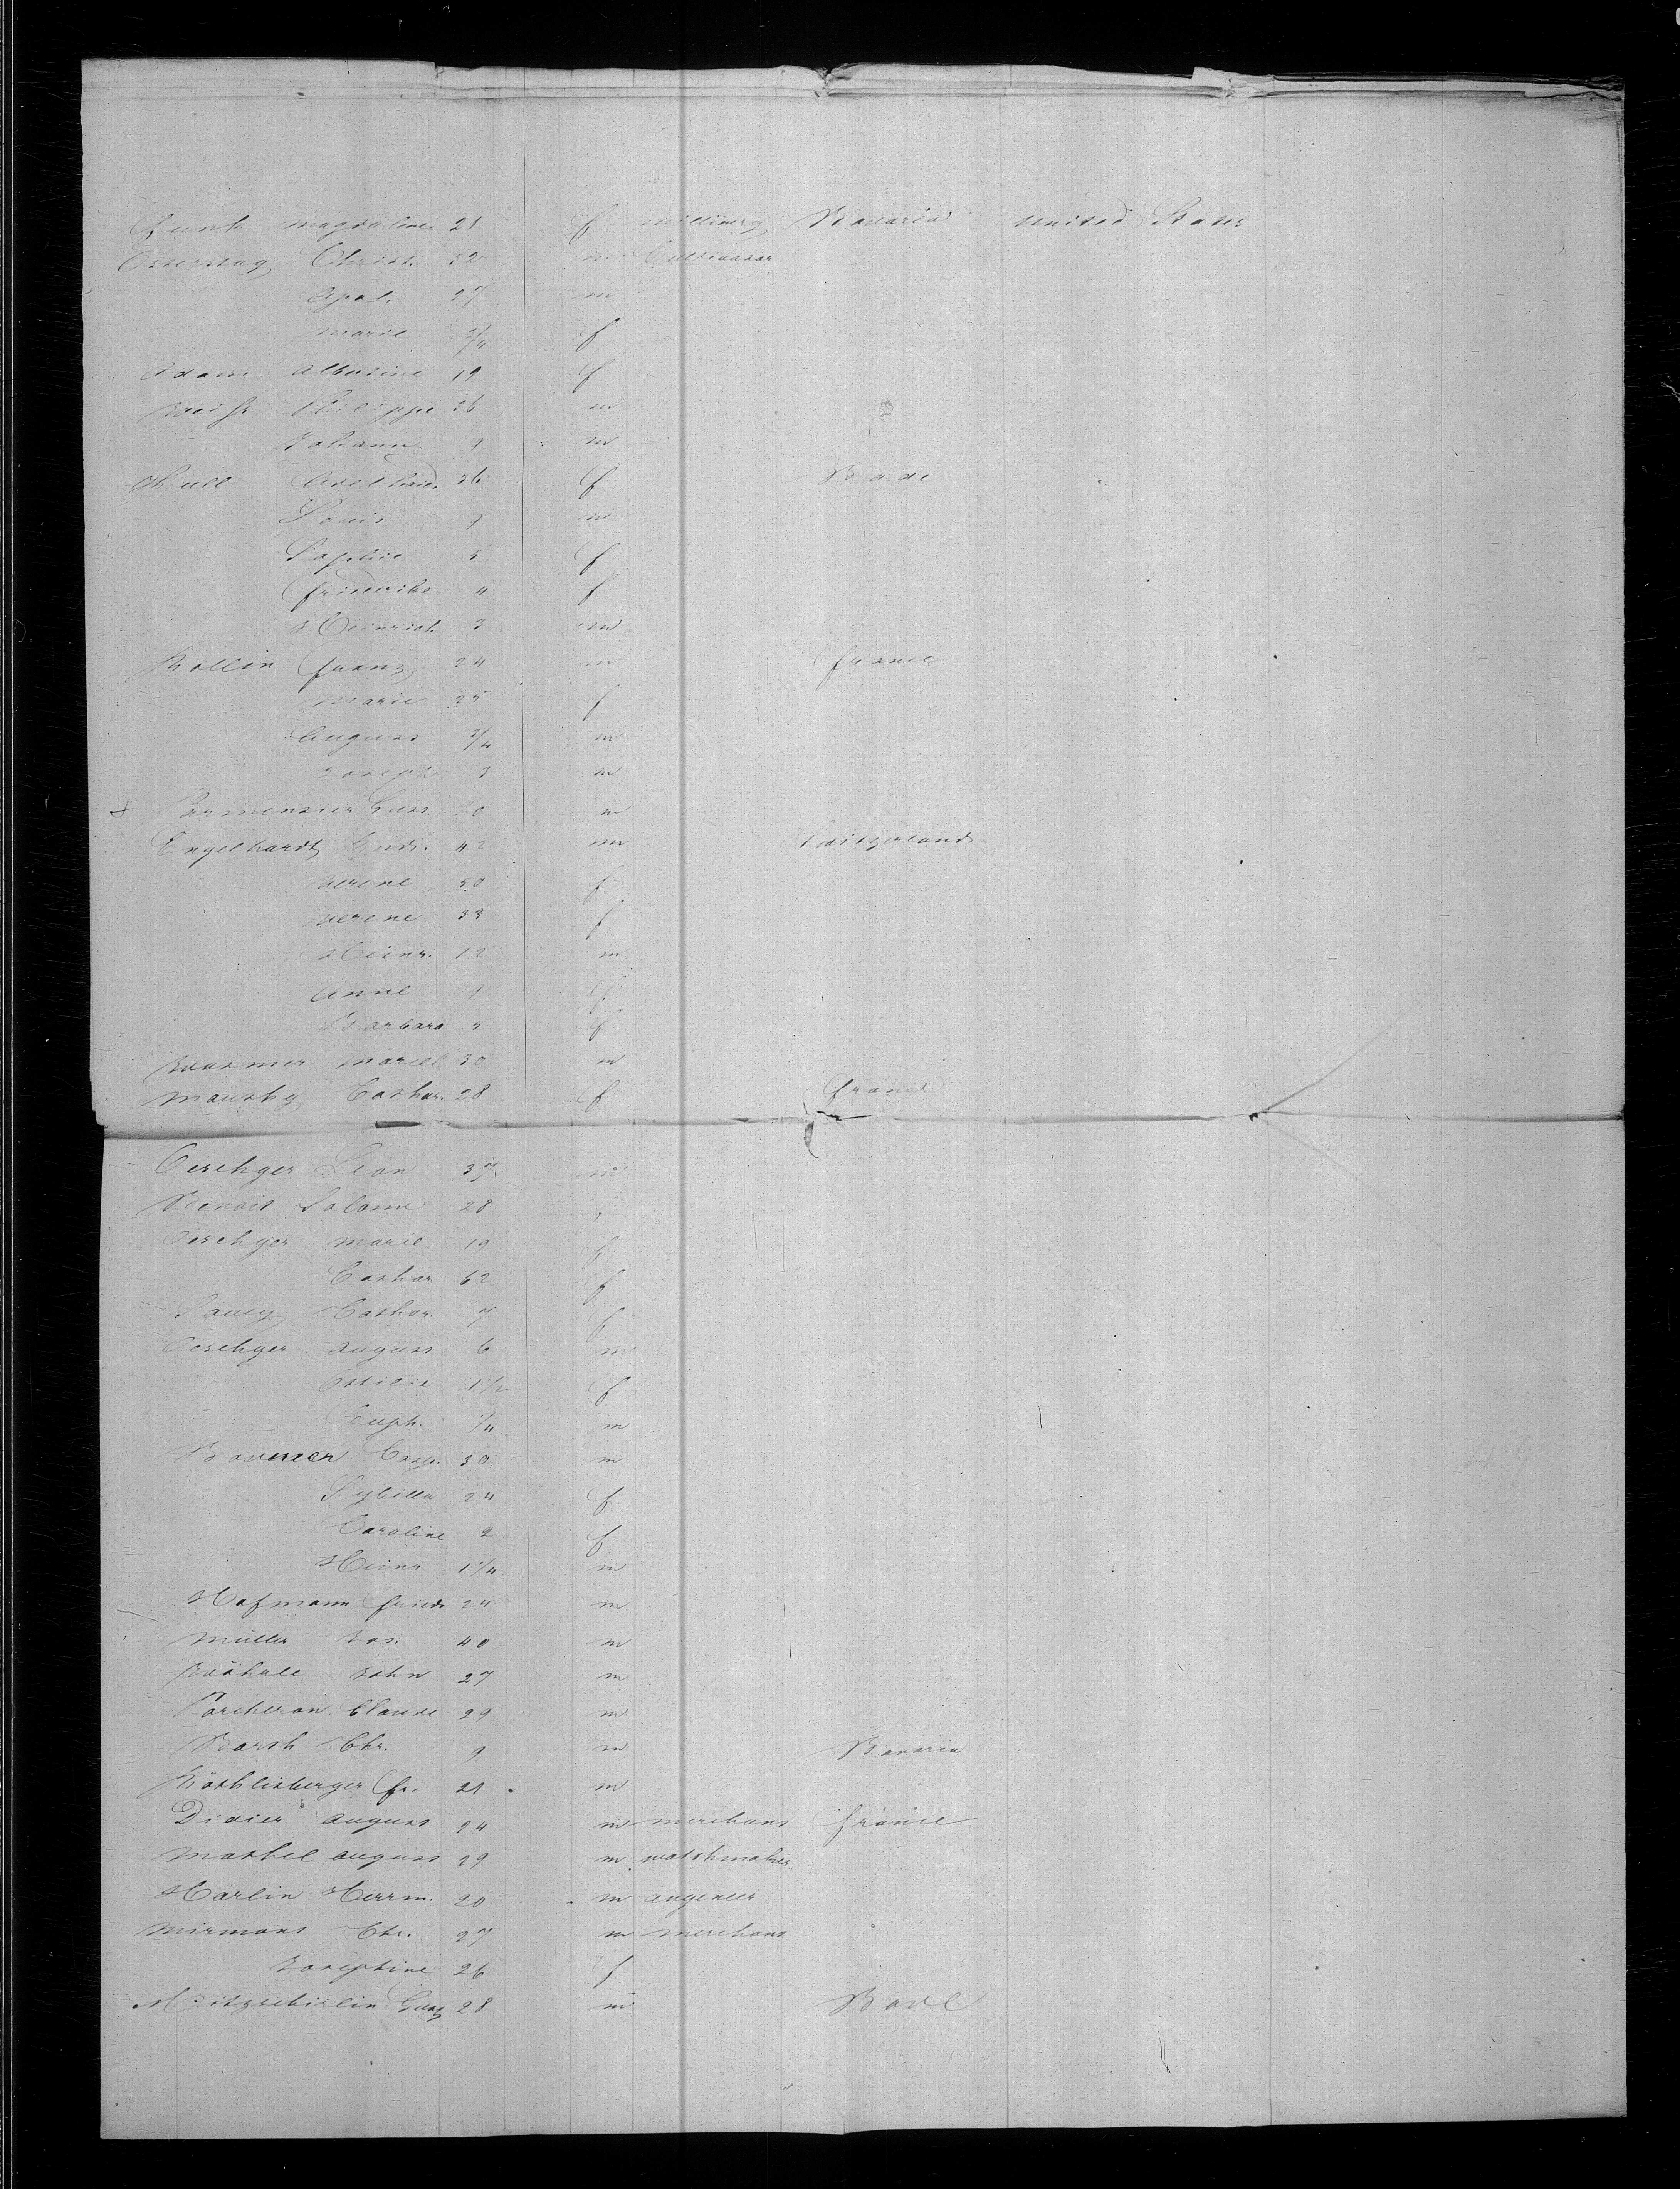 Funk Magdaline 21 f millinery Bavaria United States
Ostertag Christ. 32 m Cultivator
Apol. 27 m
Marie 3/4 f
Adam Albertine 19 f
Weiss Philippe 36 m
Johann 9 m
36 f Bade
Louis 9 m
Sophie 5 f
Friederike 4 f
Heinrich 3 m
Rollin Franz 24 m France
Marie 25 f
August 3/4 m
Joseph 3 m
Parmentier Gust. m
Engelhardt 42 m Switzerland
Verene 50 f
Verene 33 f
Heinr. 12 m
Anne 9 f
Barbara 5 f
Marcel 30 m
Mausky Cathar. 28 f France
Oeschger Leon 37 m
Benoit Salome 28
Oeschger Marie 19 f
Cathar 62 f
Cathar. 7 f
Oeschger August 6 m
Ottilie 1 1/2 f
1/4 m
Casp. 30 m
Sybilla 24 f
Caroline 2 f
Heinr 1 1/4 m
Hofmann Friedr 24 m
Müller Jos. 40 m
John 27 m
Porcheron Claude 29 m
Barth Chr. 9 m Bavaria
Röthlisberger Fr. 21 m
Didier August 24 m merchant France
Mathel August 29 m watchmaker
Harlin Herrm. 20 m engeneer
Mirmont Chr. 27 m merchant
Josephine 26 f
28 m Bade